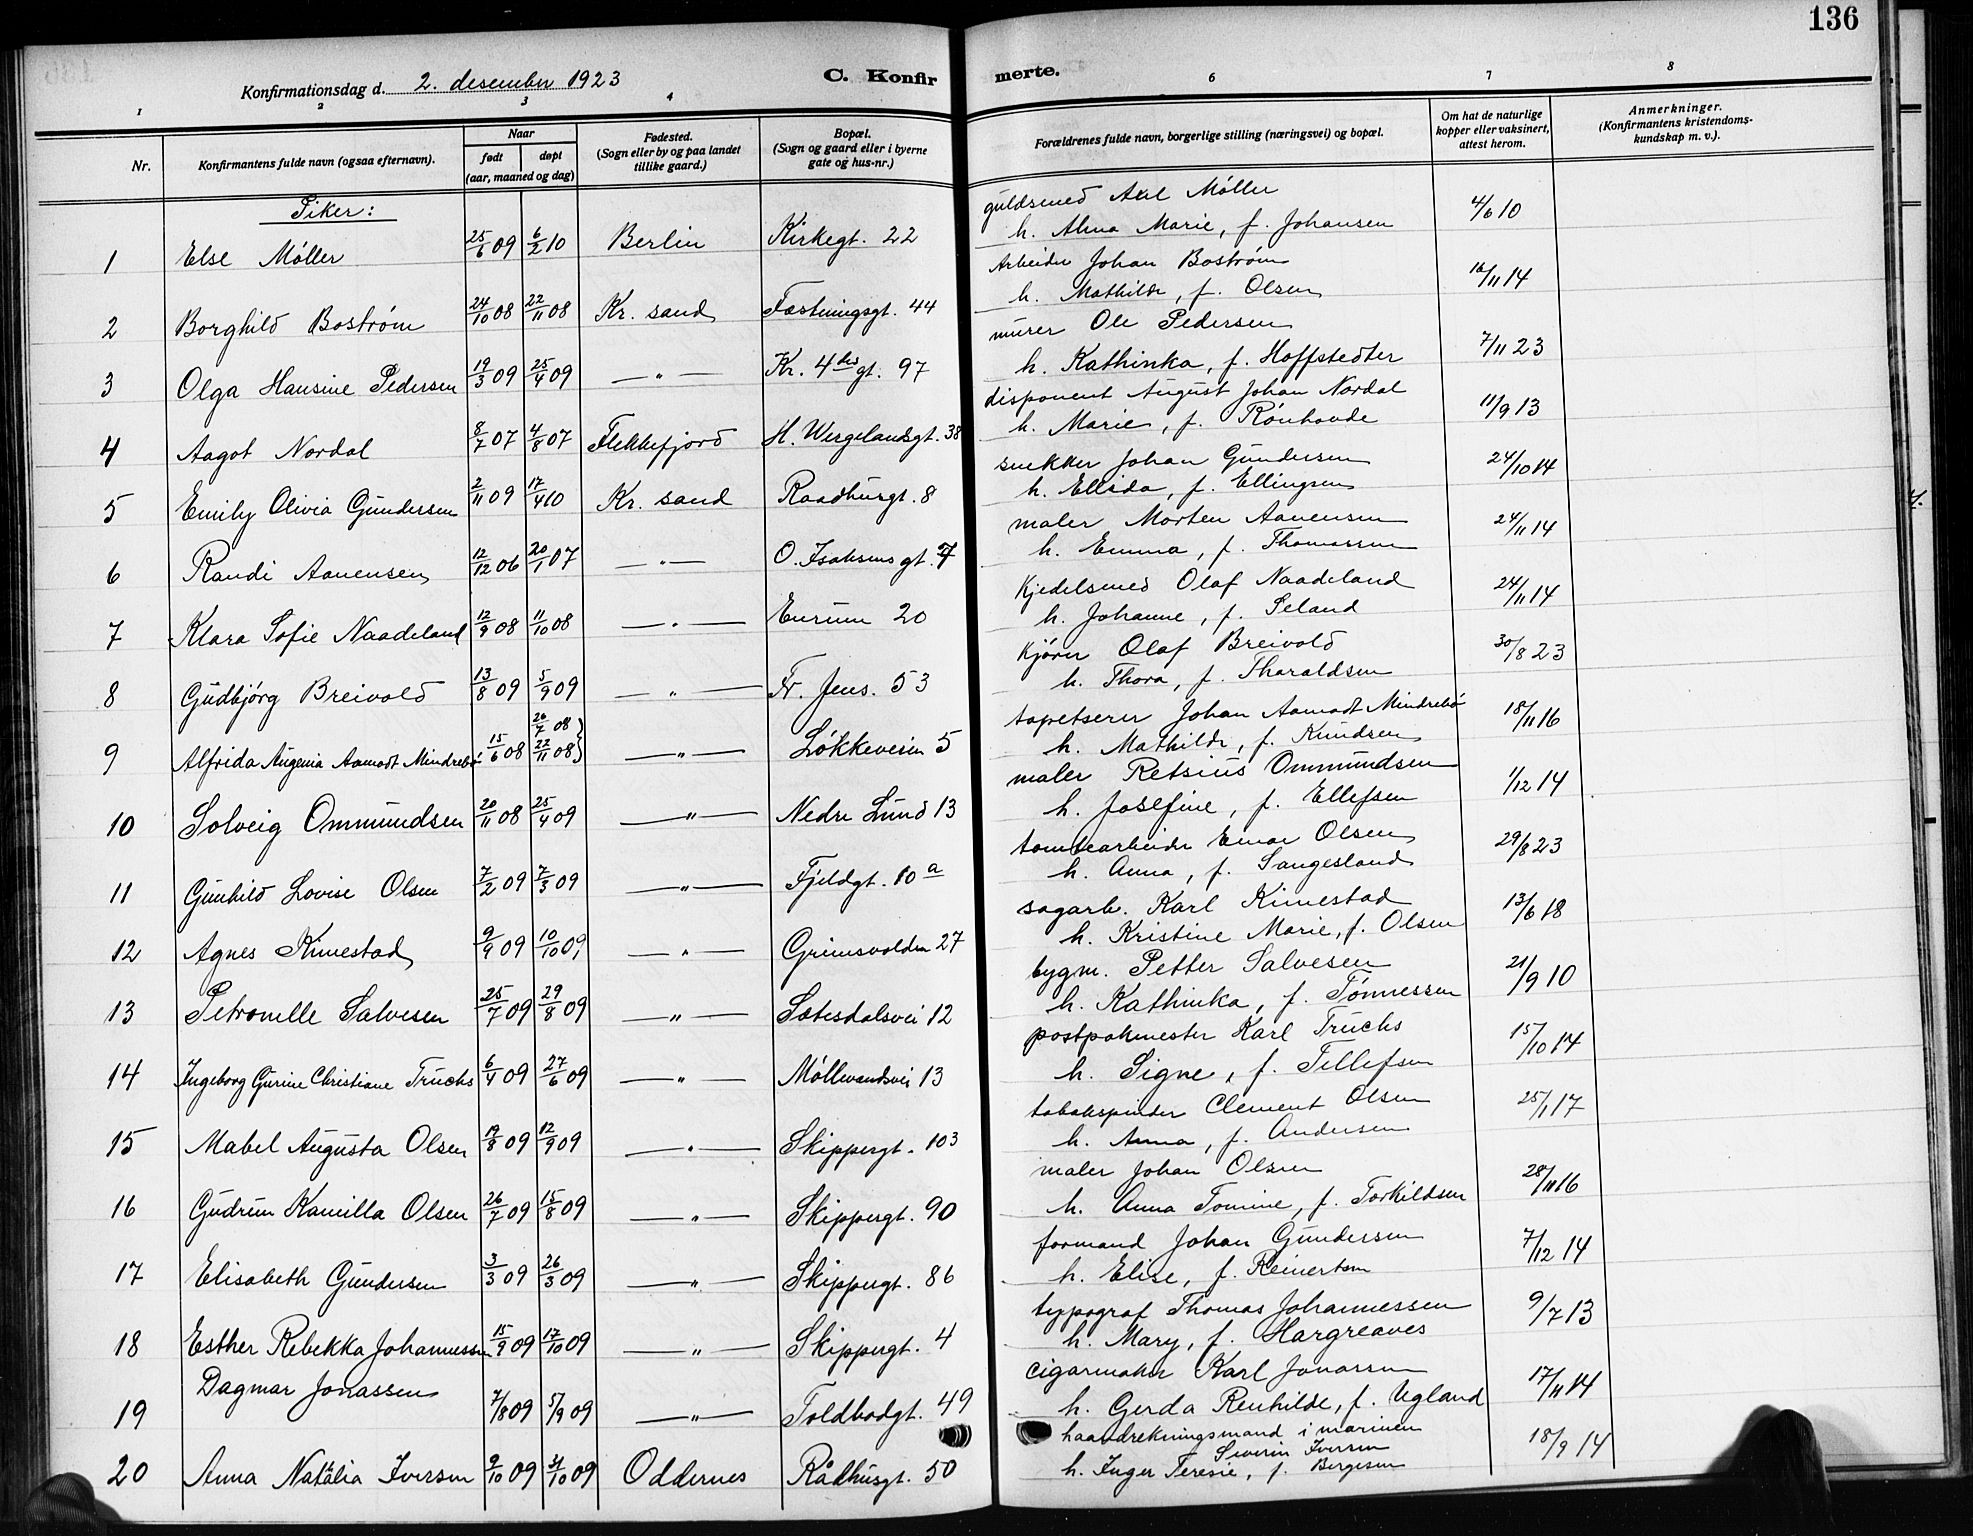 136
Konfirmationsdag d. 2. desember 1923
C. Konfir merte.
1 2 3 4 6 7 8
Nr.
Konfirmantens fulde navn (ogsaa efternavn).
Naar
født døpt
(aar, maaned og dag)
Fødested.
(Sogn eller by og paa landet
tillike gaard.)
Bopæl.
(Sogn og gaard eller i byerne
gate og hus-nr.)
Forældrenes fulde navn, borgerlige stilling (næringsvei) og bopæl.
Om hat de naturlige
kopper eller vaksinert,
attest herom.
Anmerkninger.
(Konfirmantens kristendoms-
kundskap m. v.).
Piker:
guldsmed Axel Møller
1 Else Møller 25/6 09 6/2 10 Berlin Kirkegt. 22 h. Alma Marie, f. Johansen 4/6 10
Arbeider Johan Bostrøm
2 Borghild Bostrøm 24/10 08 22/11 08 Kr. sand Fæstningsgt. 44 h. Mathilde, f. Olsen 16/11 14
murer Ole Pedersen
3 Olga Hansine Pedersen 19/3 09 25/4 09 —"— Kr. 4des gt. 97 h. Kathinka, f. Hoffstedter 7/11 23
disponent August Johan Nordal
4 Aagot Nordal 8/7 07 4/8 07 Flekkefjord H. Wergelandsgt. 38 h. Marie, f. Rønhovde 11/9 13
snekker Johan Gundersen
5 Emily Olivia Gundersen 2/11 09 17/4 10 Kr. sand Raadhusgt. 8 h. Ellida, f. Ellingsen 24/10 14
maler Morten Aanensen
6 Randi Aanensen 12/12 06 20/1 07 —"— O. Isaksens gt. 7 h. Emma, f. Thomassen 24/11 14
Kjedelsmed Olaf Naadeland
7 Klara Sofie Naadeland 12/9 08 11/10 08 —"— Enrum 20 h. Johanne, f. Seland 24/11 14
Kjører Olaf Breivold
8 Gudbjørg Breivold 13/8 09 5/9 09 —"— Fr. Jens. 53 h. Thora, f. Tharaldsen 30/8 23
tapetserer Johan Aamodt Mindrebø
26/7 08
9 Alfrida Augenia Aamodt Mindrebø 15/6 08 22/11 08 —"— Løkkeveien 5 h. Mathilde, f. Knudsen 18/11 16
maler Retsius Ommundsen
10 Solveig Ommundsen 20/11 08 25/4 09 —"— Nedre Lund 13 h. Josefine, f. Ellefsen 1/12 14
tomtearbeider Einar Olsen
11 Gunhild Lovise Olsen 7/2 09 7/3 09 —"— Fjeldgt. 10 a h. Anna, f. Sangesland 29/8 23
sagarb. Karl Kimestad
12 Agnes Kimestad 9/9 09 10/10 09 —"— Grimsvolden 27 h. Kristine Marie, f. Olsen 13/6 18
bygm. Petter Salvesen
13 Petronelle Salvesen 25/7 09 29/8 09 —"— Sætesdalsvei 12 h. Kathinka, f. Tønnessen 21/9 10
postpakmester Karl Truchs
14 Ingeborg Gurine Christiane Truchs 6/4 09 27/6 09 —"— Møllevandsvei 13 h. Signe, f. Tellefsen 15/10 14
tobakspinder Clement Olsen
15 Mabel Augusta Olsen 19/8 09 12/9 09 —"— Skippergt. 103 h. Anna, f. Andersen 25/1 17
maler Johan Olsen
16 Gudrun Kamilla Olsen 26/7 09 15/8 09 —"— Skippergt. 90 h. Anna Tomine, f. Torkildsen 28/11 16
formand Johan Gundersen
17 Elisabeth Gundersen 3/3 09 26/3 09 —"— Skippergt. 86 h. Elise, f. Reinertsen 7/12 14
typograf Thomas Johannessen
18 Esther Rebekka Johannessen 15/9 09 17/10 09 —"— Skippergt. 4 h. Mary, f. Hargreaves 9/7 13
cigarmaker Karl Jonassen
19 Dagmar Jonassen 7/8 09 5/9 09 —"— Toldbodgt. 49 h. Gerda Renhilde, f. Ugland 17/11 14
haandrekningsmand i marinen
Severin Iversen
20 Anna Natalia Iversen 9/10 09 31/10 09 Oddernes Rådhusgt. 50 h. Inger Teresie, f. Børgesen 18/9 14